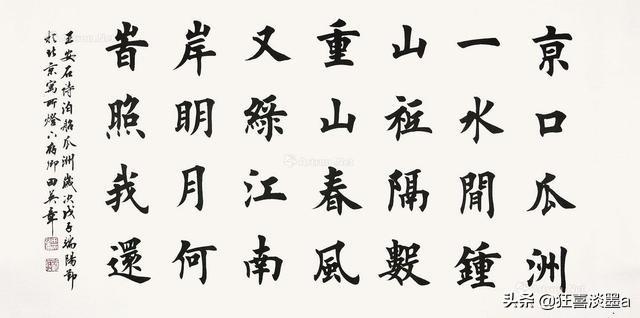 亰口瓜洲
一水間鍾
山祗隔數
重山春風
又綠江南
岸明月何
旹照我還
王安石詩泊船瓜洲歲次戊子端陽節
於北京寫所燈下存卿田英章
Artron.Net
头条 @狂喜淡墨a